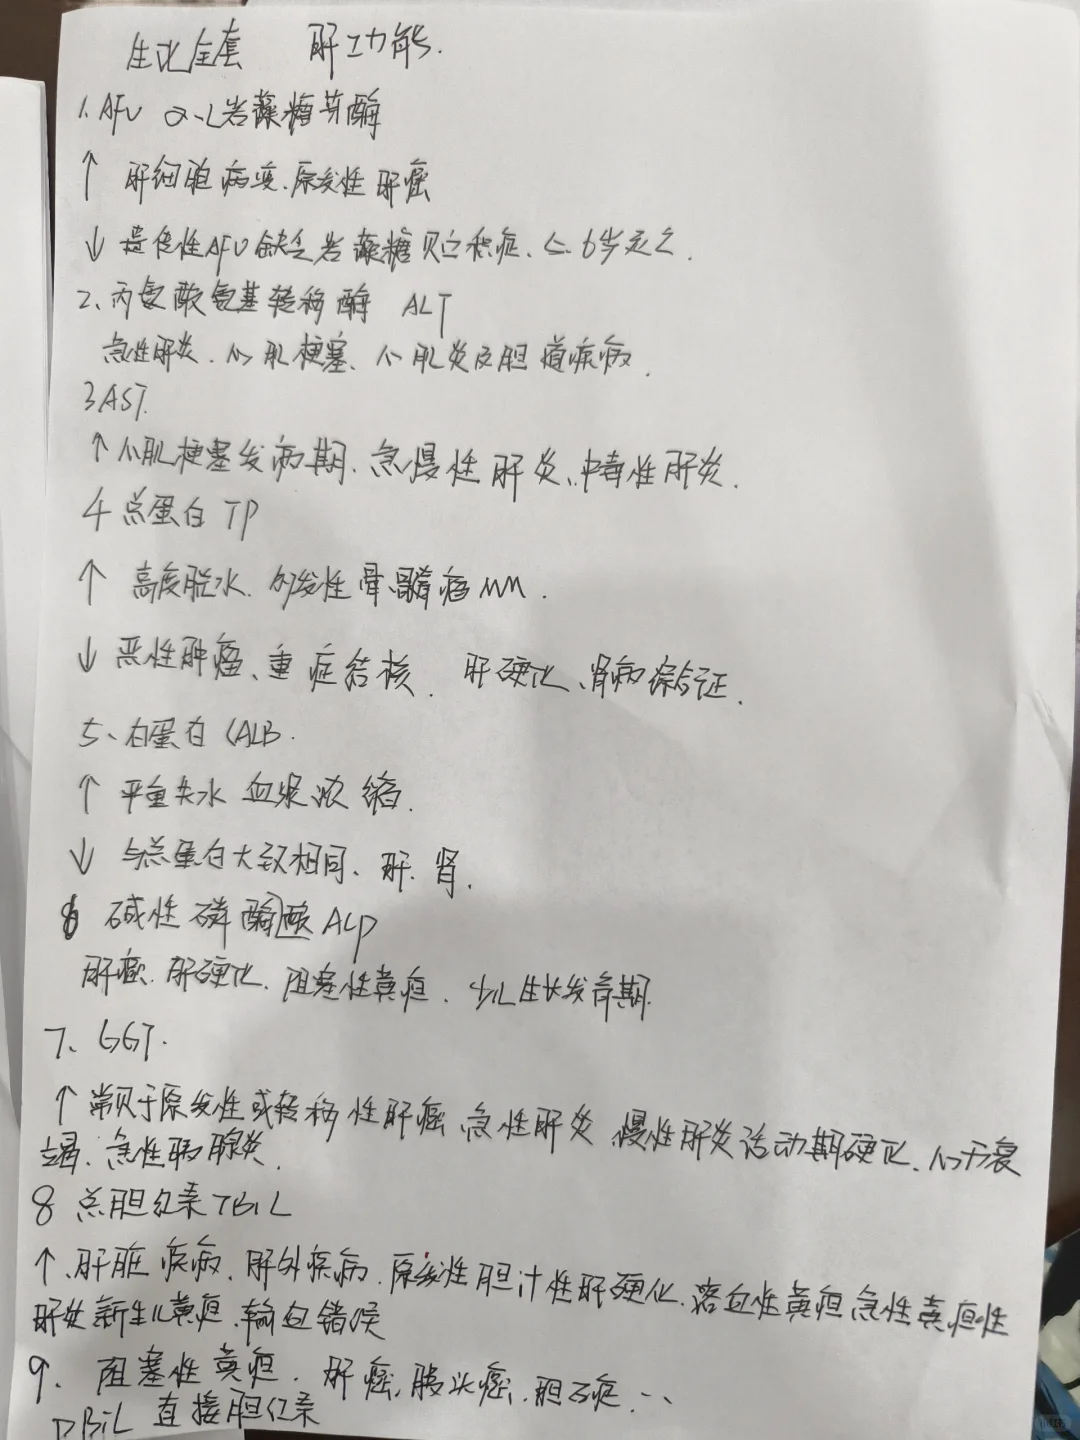 生化全套 肝功能.
1. AFU α-L岩藻糖苷酶
↑ 肝细胞病变.原发性肝癌
↓ 遗传性AFU缺乏岩藻糖贮积症、<6岁死亡.
2、丙氨酸氨基转移酶 ALT
急性肝炎.心肌梗塞、心肌炎及胆道疾病.
3 AST.
↑ 心肌梗塞发病期.急慢性肝炎、中毒性肝炎.
4 总蛋白 TP
↑ 高度脱水. 多发性骨髓瘤MM.
↓ 恶性肿瘤、重症结核. 肝硬化、肾病综合征.
5、白蛋白 (ALB.
↑ 严重失水 血浆浓缩.
↓ 与总蛋白大致相同、肝.肾.
6 碱性磷酸酶 ALP
肝癌.肝硬化.阻塞性黄疸. 少儿生长发育期.
7、GGT.
↑ 常见于原发性或转移性肝癌 急性肝炎 慢性肝炎活动期硬化、心力衰
竭.急性胰腺炎.
8 总胆红素TBiL
↑.肝脏疾病.肝外疾病.原发性胆汁性肝硬化.溶血性黄疸急性黄疸性
肝炎新生儿黄疸.输血错误
9. 阻塞性黄疸. 肝癌.胰头癌.胆石症.、、
DBiL 直接胆红素
小红书